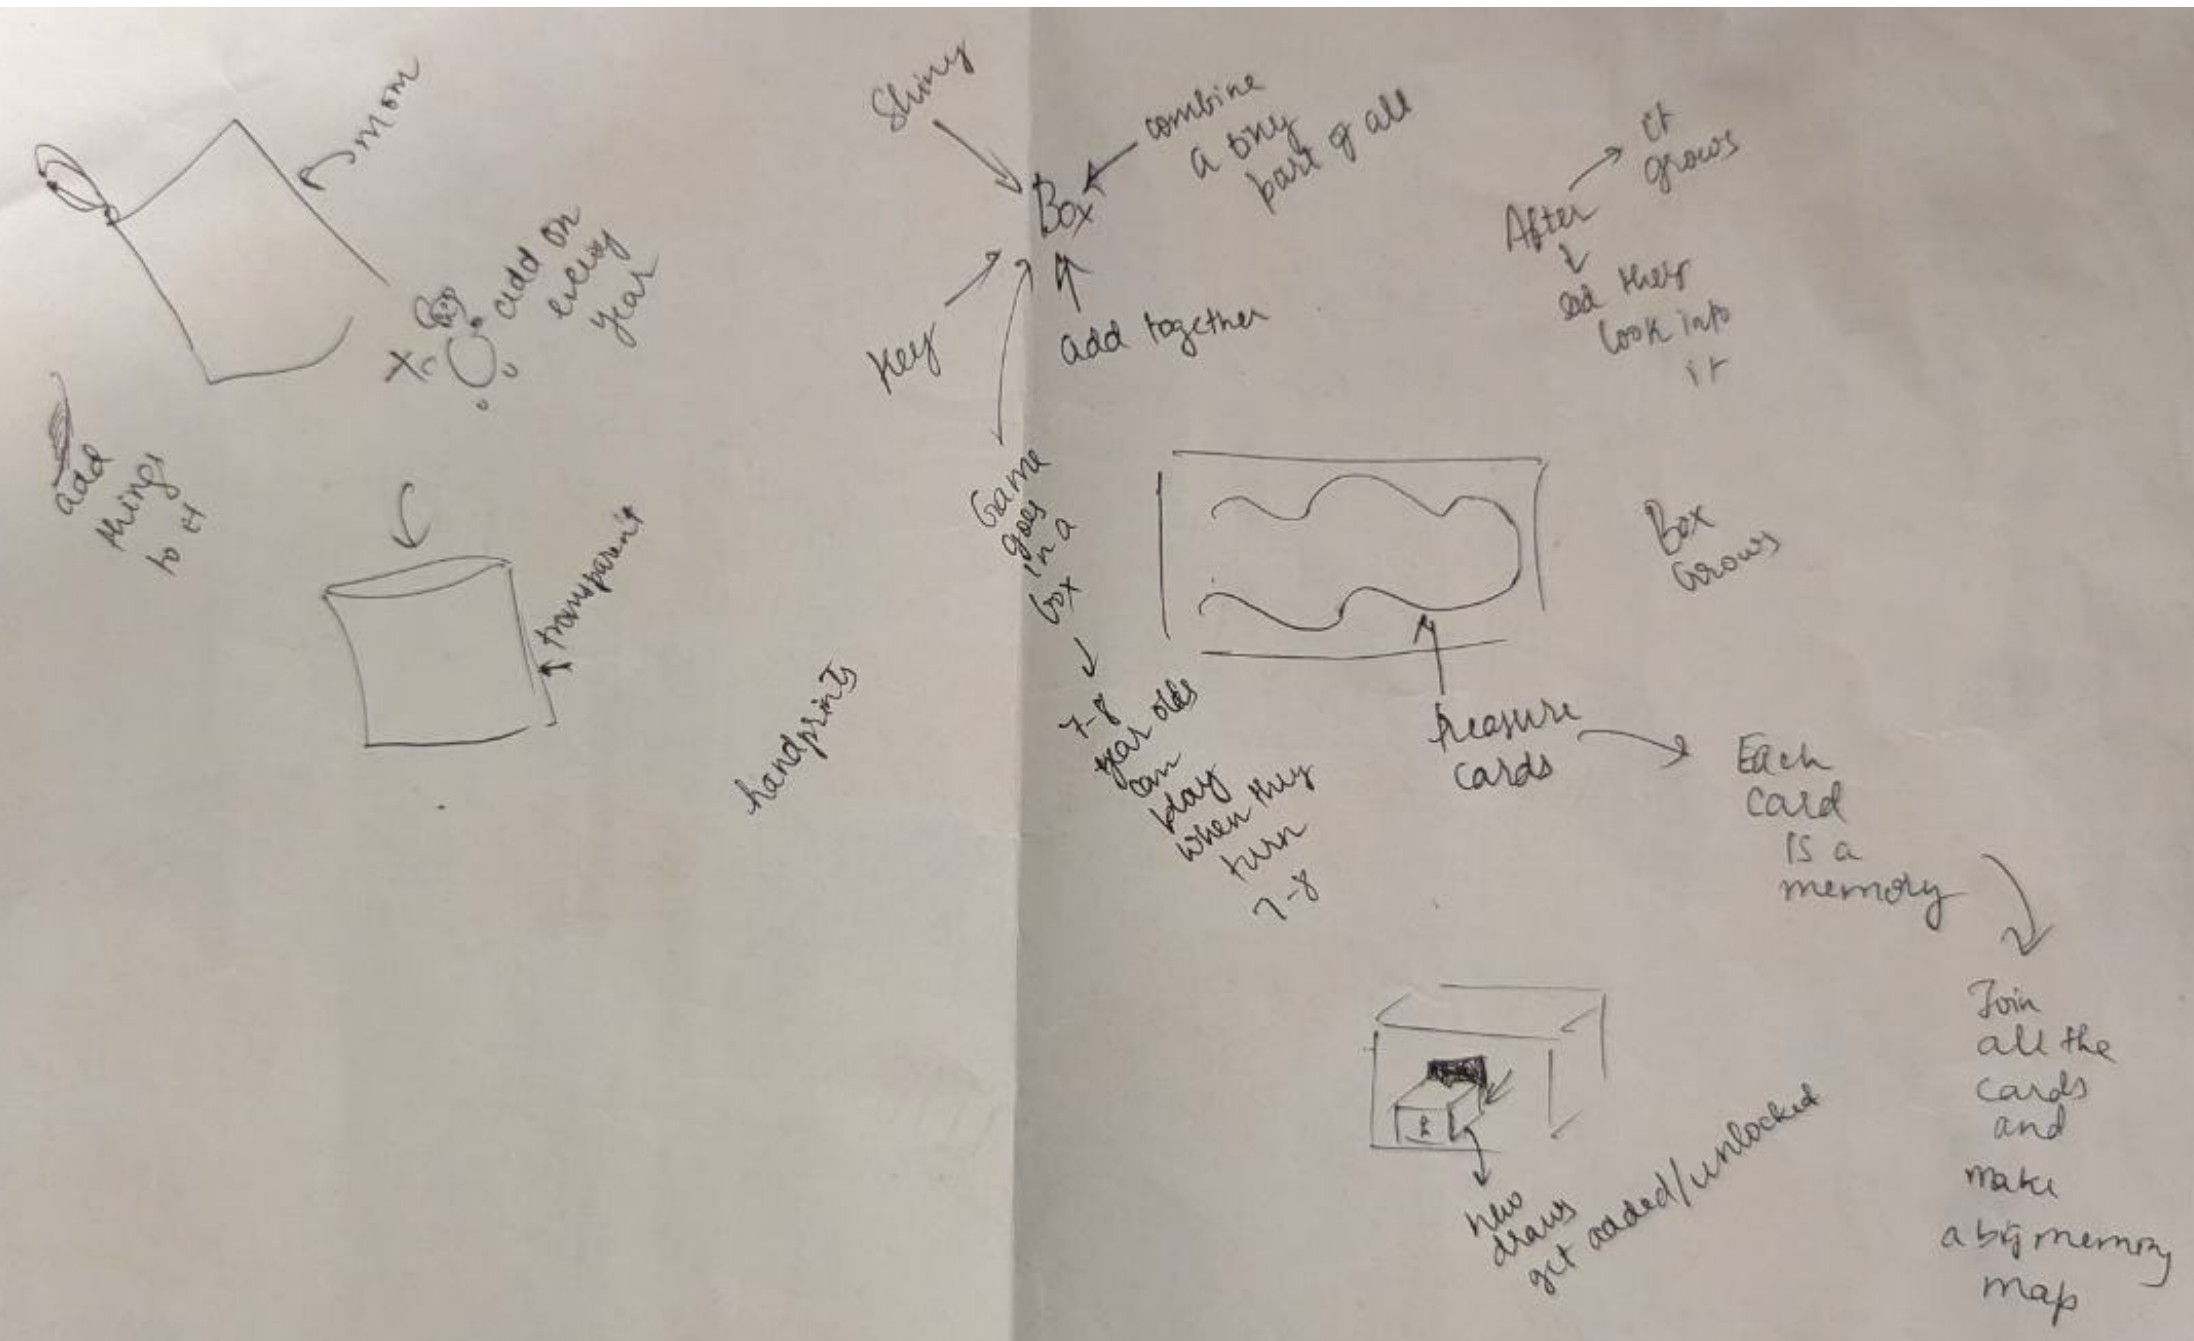 mom
add on
every
year
add
things
to it
transparent
handprints
Shiny
Box
combine
a tiny
part of all
Key
add together
Game
goes
in a
box
7-8
year olds
can
play
when they
turn
7-8
After
it
grows
they
look into
it
Box
Grows
treasure
cards
Each
card
is a
memory
Join
all the
cards
and
make
a big memory
map
new
draws
get added/unlocked